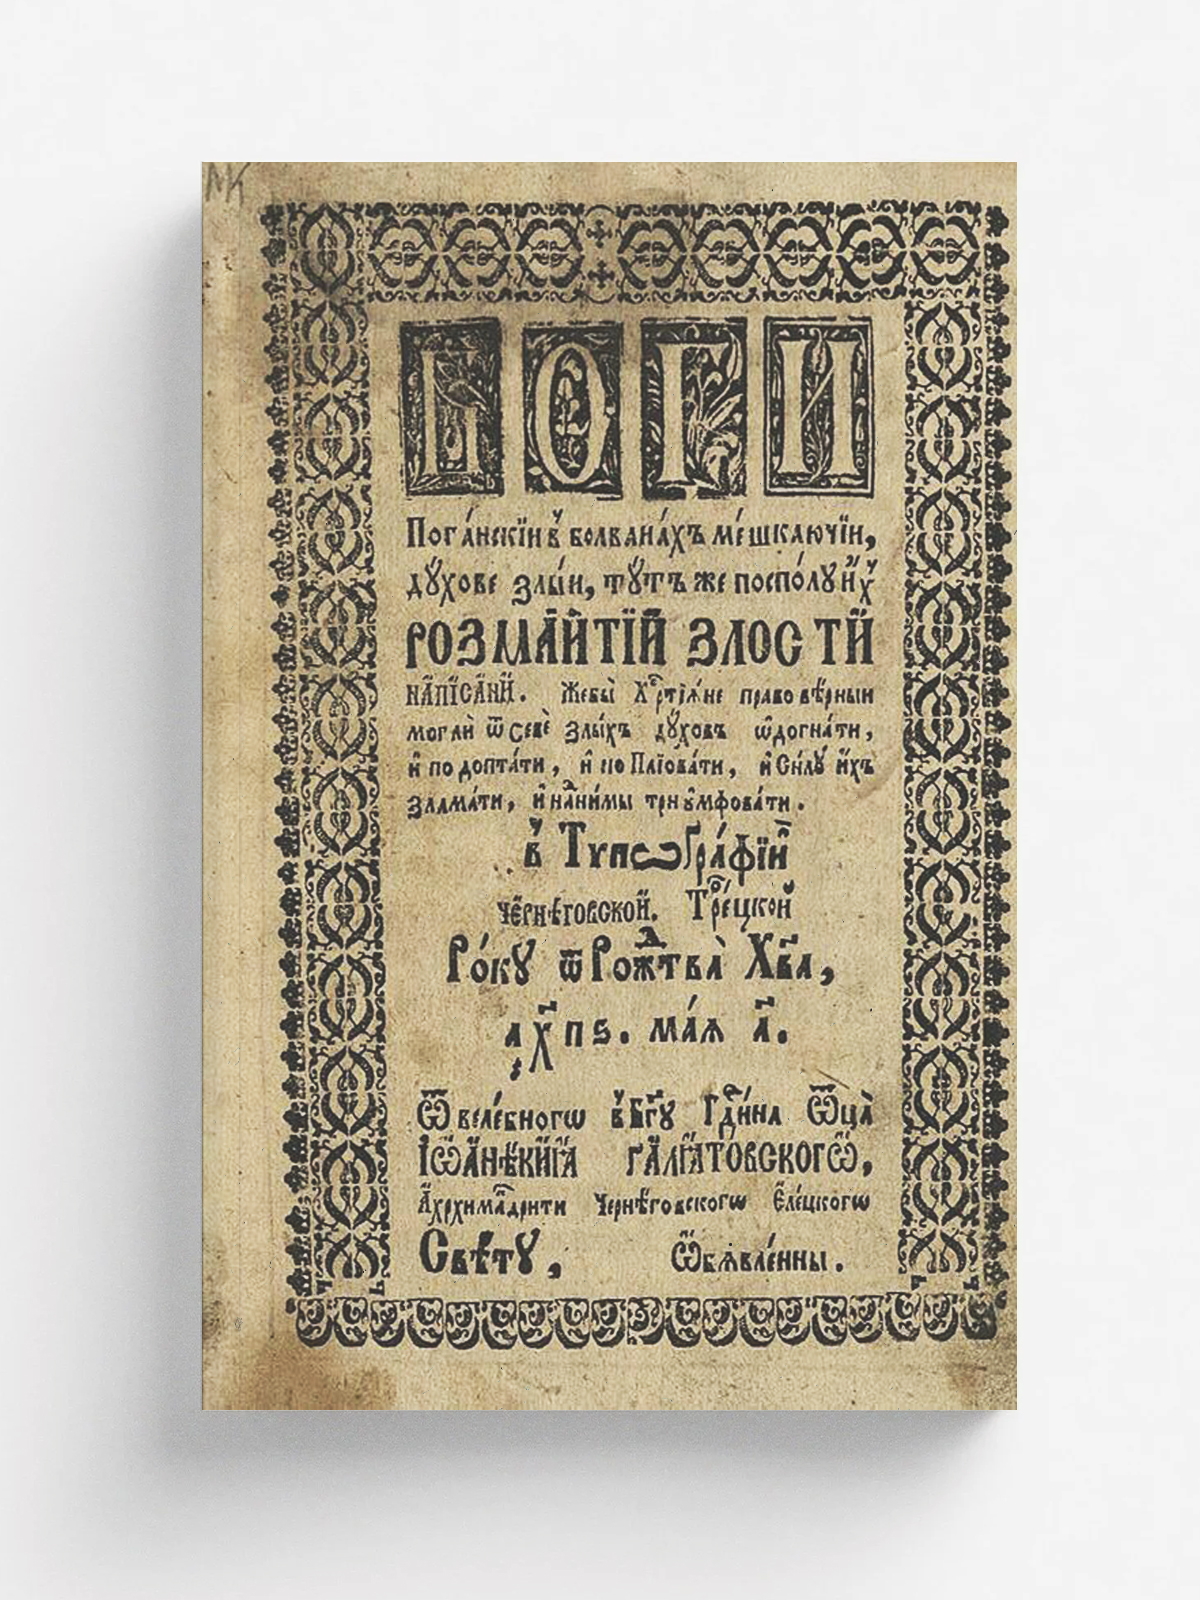 МК
БОГИ
Пога́нскїи в̾ болвана́хъ ме́шкаючїи,
ду́хове злы́и, ту́тъ же поспо́лу и҆́х̾
РОЗМАИ҆ТЇИ҆ ЗЛОСТИ҆
НАПИ́САНИ҆. Жебы̀ Хр҇тїѧ́не правовѣ́рныи
могли ѿ себѐ злы́хъ ду́ховъ ѿдогна́ти,
и҆ подопта́ти, и҆ поплїова́ти, и҆ си́лу и҆́хъ
злама́ти, и҆ над̾ ни́мы трїѹмфова́ти.
в̾ Тѵпоґра́фїи҆
че҆рнѣ́говской. Тро́ецкой
Ро́ку ѿ Рож̾дтва̀ Хв҃а,
҂а҃хп҃ѕ. ма́ѧ а҃.
Ѿ велебного в̾ Бг҃у Гд҇и́на Ѿца̀
ІѠАНѢКИ҆Ѧ ГАЛѦТОВСКОГѠ,
А҆рхима́дрити Чернѣ́говскогѡ Е҆ле́цкогѡ
Свѣ́ту, Ѡ҆бѧвле́нны.